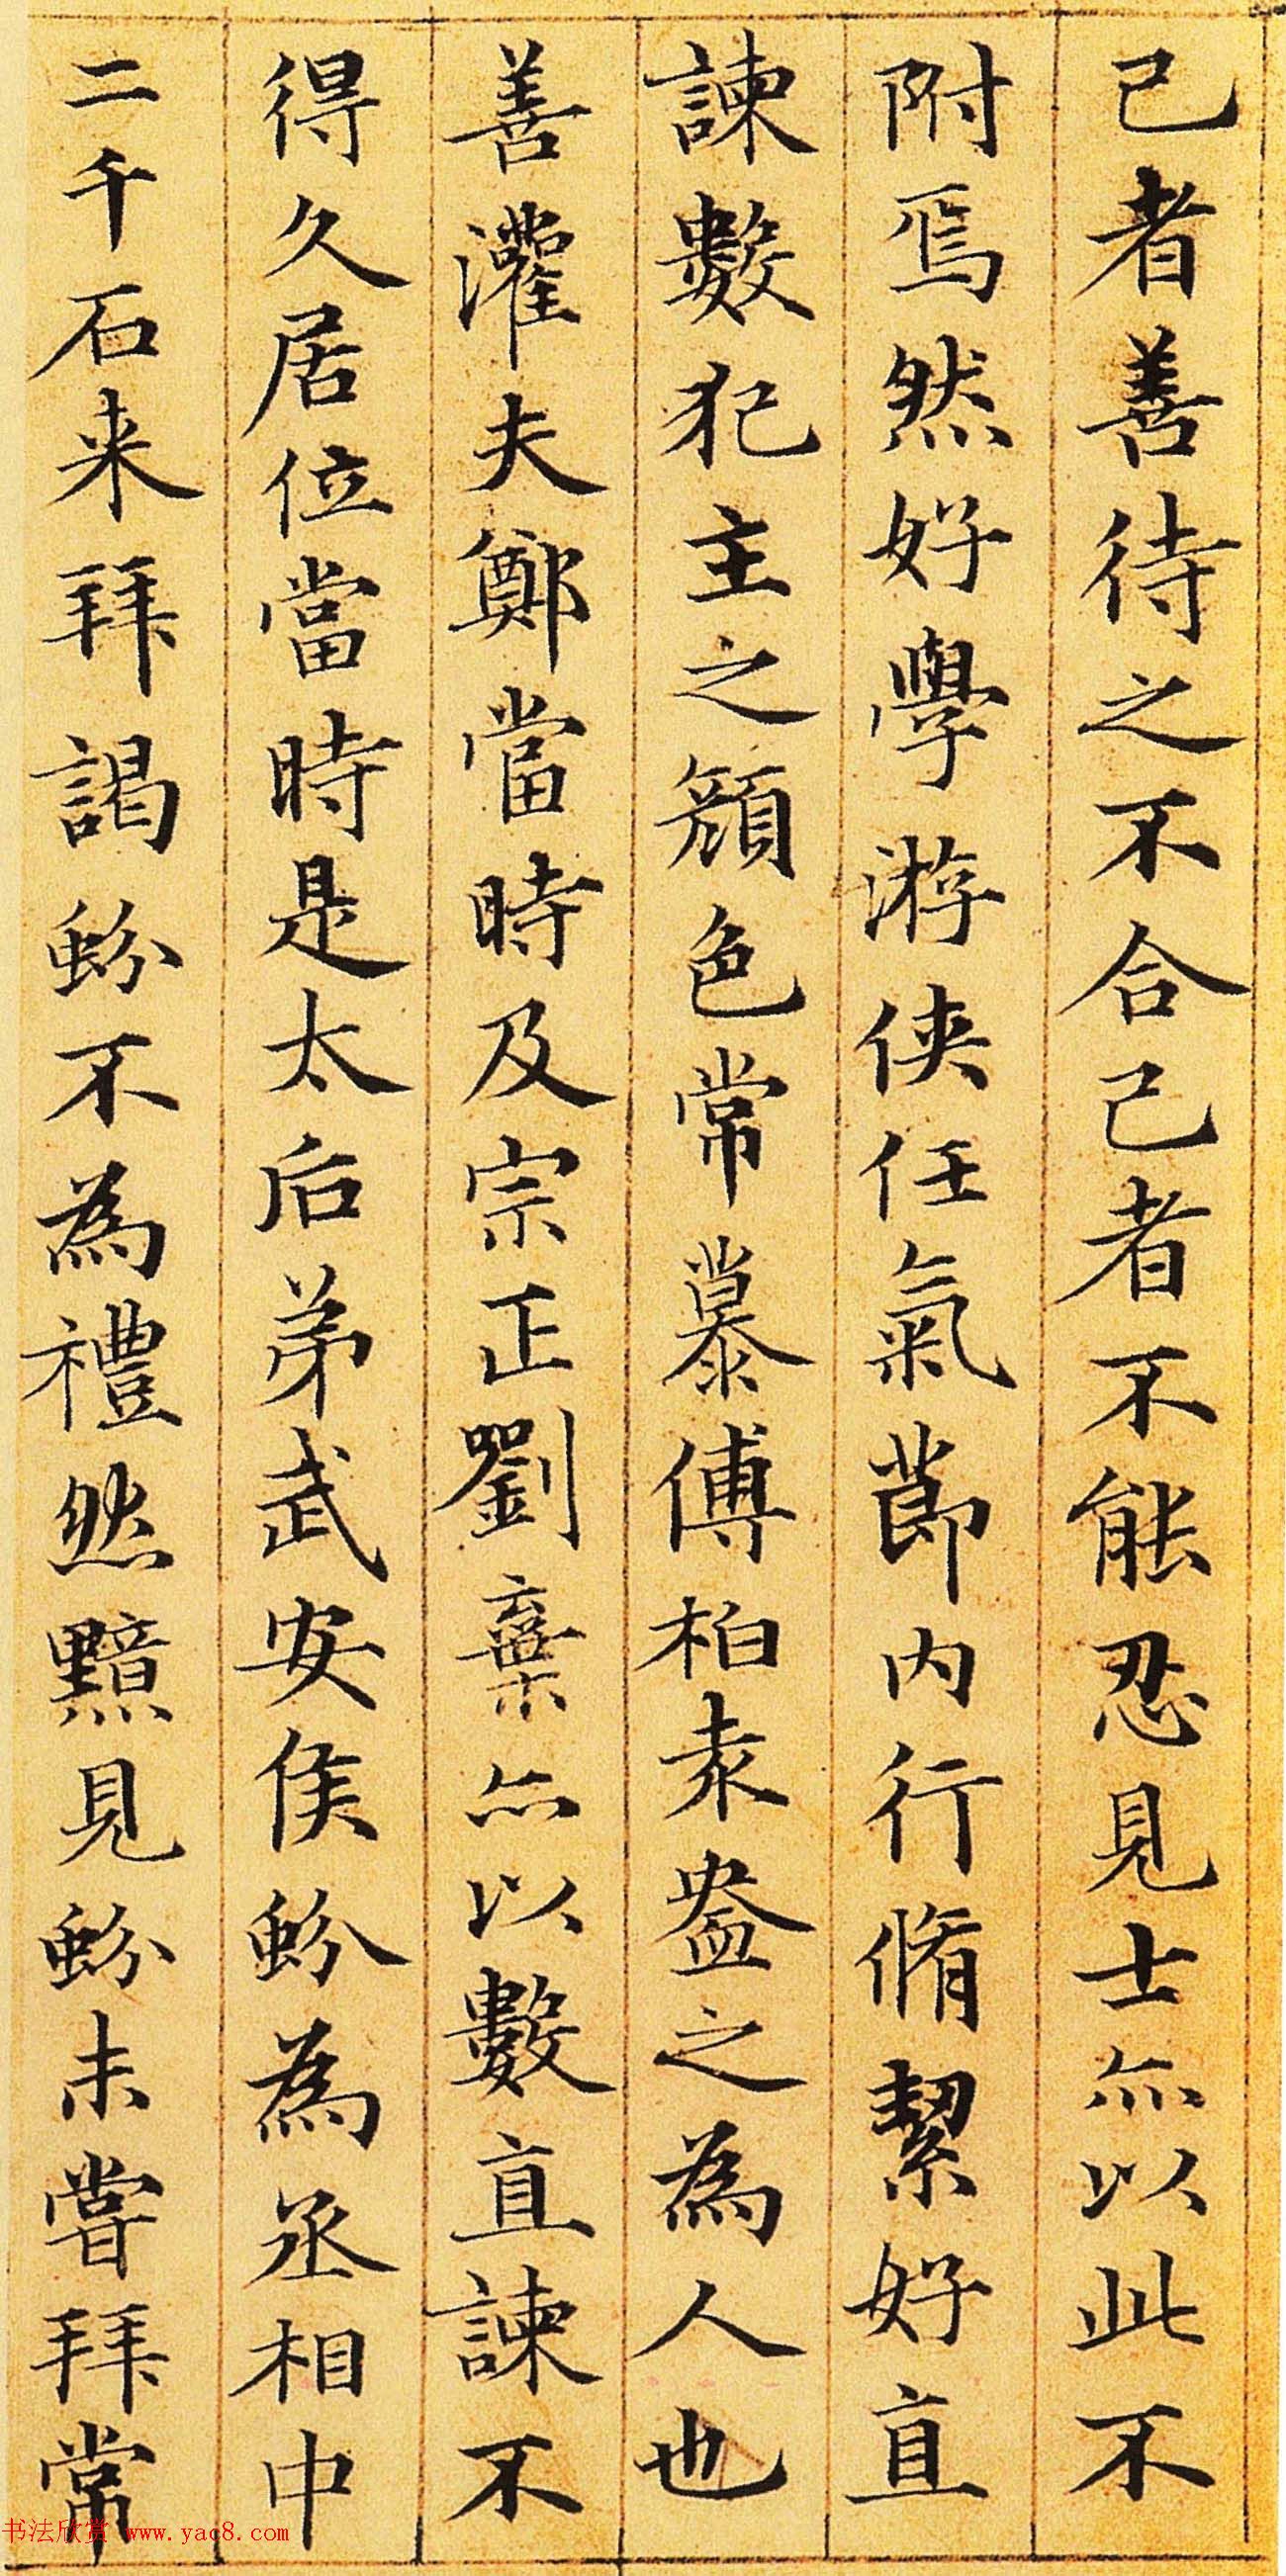 己者善待之不合己者不能忍見士亦以此不
附焉然好學游俠任氣節內行脩絜好直
諫數犯主之顏色常慕傅柏袁盎之為人也
善灌夫鄭當時及宗正劉棄亦以數直諫不
得久居位當時是太后弟武安侯蚡為丞相中
二千石来拜謁蚡不為禮然黯見蚡未嘗拜常
书法欣赏 www.yac8.com